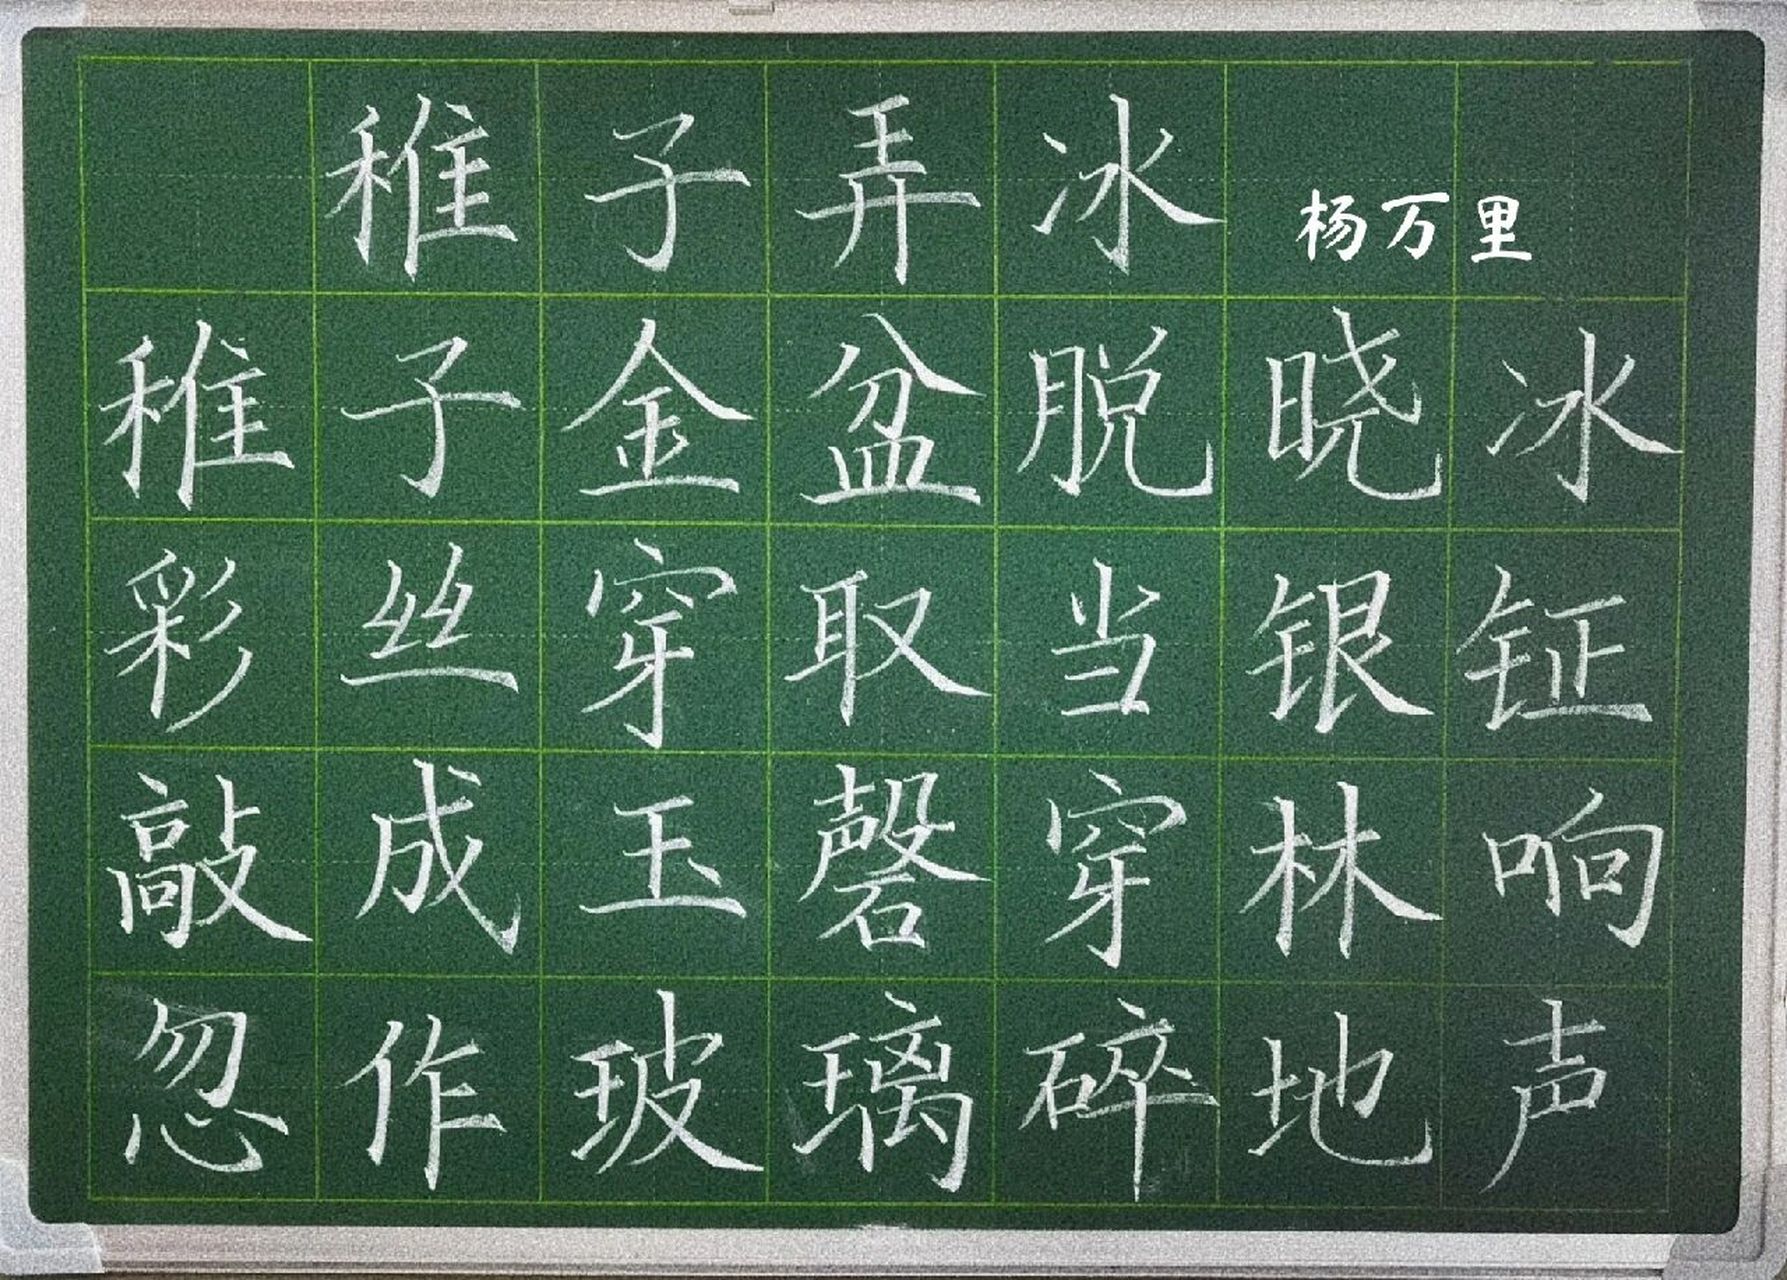 稚子弄冰 杨万里
稚子金盆脱晓冰
彩丝穿取当银钲
敲成玉磬穿林响
忽作玻璃碎地声